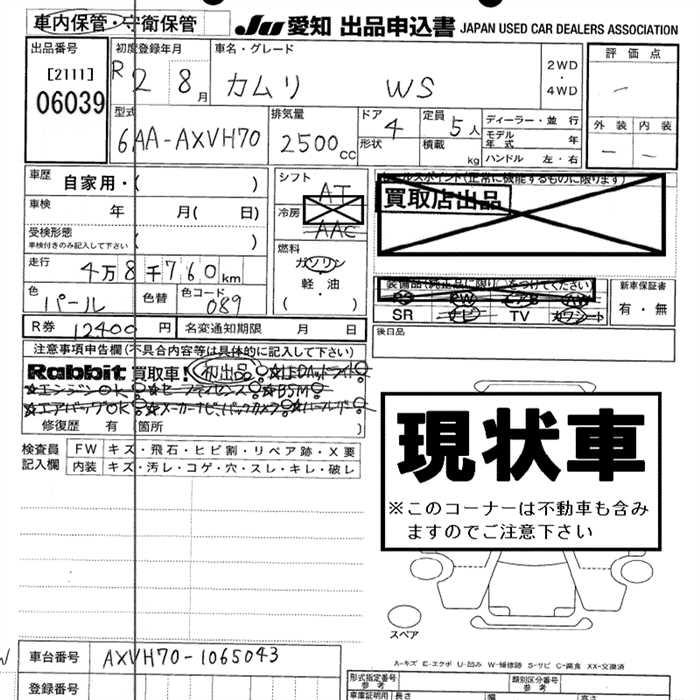 車内保管・守衛保管
JU 愛知 出品申込書 JAPAN USED CAR DEALERS ASSOCIATION
出品番号
[2111]
06039
初度登録年月
R2 8月
車名・グレード
カムリ WS
2WD
・
4WD
評価点
型式
6AA-AXVH70
排気量
2500cc
ドア
4
形状
定員
5人
積載
kg
ディーラー・並行
モデル年式 年
ハンドル 左・右
外装 内装
車歴
自家用・( )
車検
年 月( 日)
受検形態
車検付きのみ記入して下さい
( )
走行
4万8千760km
色
パール
色替
色コード
089
R券 12400円
名変通知期限 月 日
シフト
AT
冷房
AAC
燃料
ガソリン
軽・油
( )
セールスポイント(正常に機能するものに限ります)
買取店出品
装備品(純正品に限り)○をつけてください
SR ナビ TV カワシート
新車保証書
有・無
後日品
注意事項申告欄(不具合内容等は具体的に記入して下さい)
Rabbit 買取車! 初出品 ☆LEDヘッドライト○
☆エンジンOK ☆セーフティセンス○ ☆BSM○
☆エアバッグOK ☆メーカーナビ、バックカメラ○
修復歴 有 (箇所 )
検査員記入欄
FW キズ・飛石・ヒビ割・リペア跡・X要
内装 キズ・汚レ・コゲ・穴・スレ・キレ・破レ
現状車
※このコーナーは不動車も含み
ますのでご注意下さい
スペア
A-キズ E-エクボ U-凹み W-補修跡 S-サビ C-腐食 XX-交換済
車台番号 AXVH70-1065043
登録番号
形式指定番号
参考
類別区分番号
参考
車庫証明用 長さ 幅 高さ